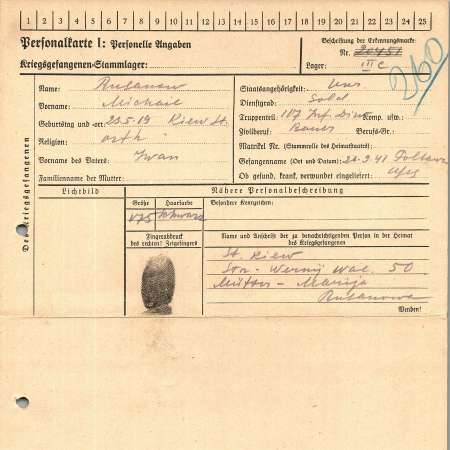 1 2 3 4 5 6 7 8 9 10 11 12 13 14 15 16 17 18 19 20 21 22 23 24 25
Personalkarte I: Personelle Angaben
Kriegsgefangenen-Stammlager:
Beschriftung der Erkennungsmarke:
Nr. 20451
Lager: III C
260
Des Kriegsgefangenen
Name: Rusanow
Vorname: Michail
Geburtstag und -ort: 23.5.19 Kiew St.
Religion: orth
Vorname des Vaters: Iwan
Familienname der Mutter:
Staatsangehörigkeit:
Dienstgrad: Sold
Truppenteil: 117 Inf. Div. Komp. usw.:
Zivilberuf: Bauer Berufs-Gr.:
Matrikel Nr. (Stammrolle des Heimatstaates):
Gefangennahme (Ort und Datum): 26.9.41 Poltawa
Ob gesund, krank, verwundet eingeliefert:
Lichtbild
Nähere Personalbeschreibung
Größe Haarfarbe
175 schwarz
Besondere Kennzeichen:
Fingerabdruck
des rechten! Zeigefingers
Name und Anschrift der zu benachrichtigenden Person in der Heimat
des Kriegsgefangenen
St. Kiew
Str- Wernÿ wal. 50
Mutter - Marija
Rusanowa
Wenden!